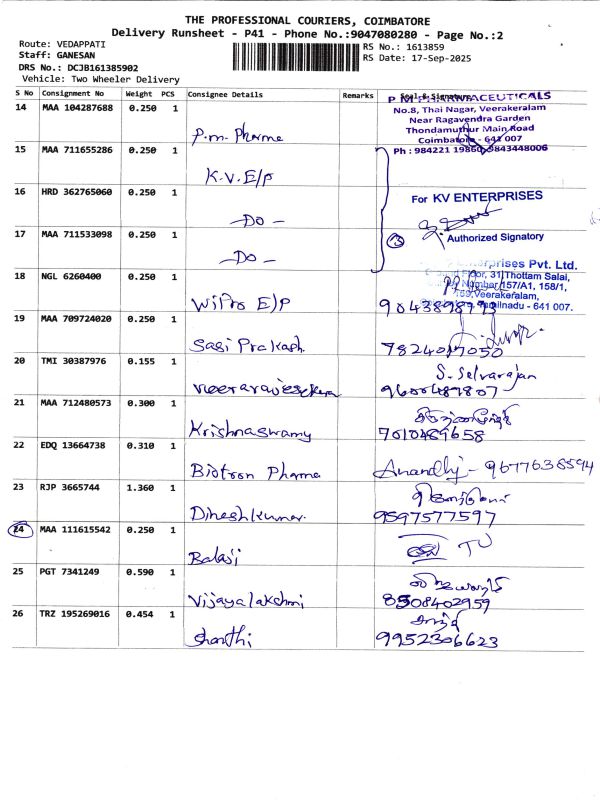 THE PROFESSIONAL COURIERS, COIMBATORE
Delivery Runsheet - P41 - Phone No.:9047080280 - Page No.:2
Route: VEDAPPATI
RS No.: 1613859
Staff: GANESAN
RS Date: 17-Sep-2025
DRS No.: DCJB161385902
Vehicle: Two Wheeler Delivery
S No Consignment No Weight PCS Consignee Details Remarks Seal & Signature
14 MAA 104287688 0.250 1 P.m. Pharma
P M PHARMACEUTICALS
No.8, Thai Nagar, Veerakeralam
Near Ragavendra Garden
Thondamuthur Main Road
Coimbatore - 641 007
Ph : 984221 19860, 9843448006
15 MAA 711655286 0.250 1 K.V. E/p
16 HRD 362765060 0.250 1 - Do -
For KV ENTERPRISES
17 MAA 711533098 0.250 1 - Do -
③ Authorized Signatory
Enterprises Pvt. Ltd.
Floor, 31, Thottam Salai,
Number 157/A1, 158/1,
159, Veerakeralam,
Tamilnadu - 641 007.
18 NGL 6260400 0.250 1 Wipro E/p 9043898793
19 MAA 709724020 0.250 1 Sasi Prakash 7824017050
20 TMI 30387976 0.155 1 S. Selvarajan
9600489807
21 MAA 712480573 0.300 1 Krishnaswamy
7010489658
22 EDQ 13664738 0.310 1 Biotron Pharma Anandhi - 9677638594
23 RJP 3665744 1.360 1 Dineshkumar
9597577597
24 MAA 111615542 0.250 1 Balaji
25 PGT 7341249 0.590 1 Vijayalakshmi
8508402959
26 TRZ 195269016 0.454 1 Shanthi
சாந்தி
9952306623